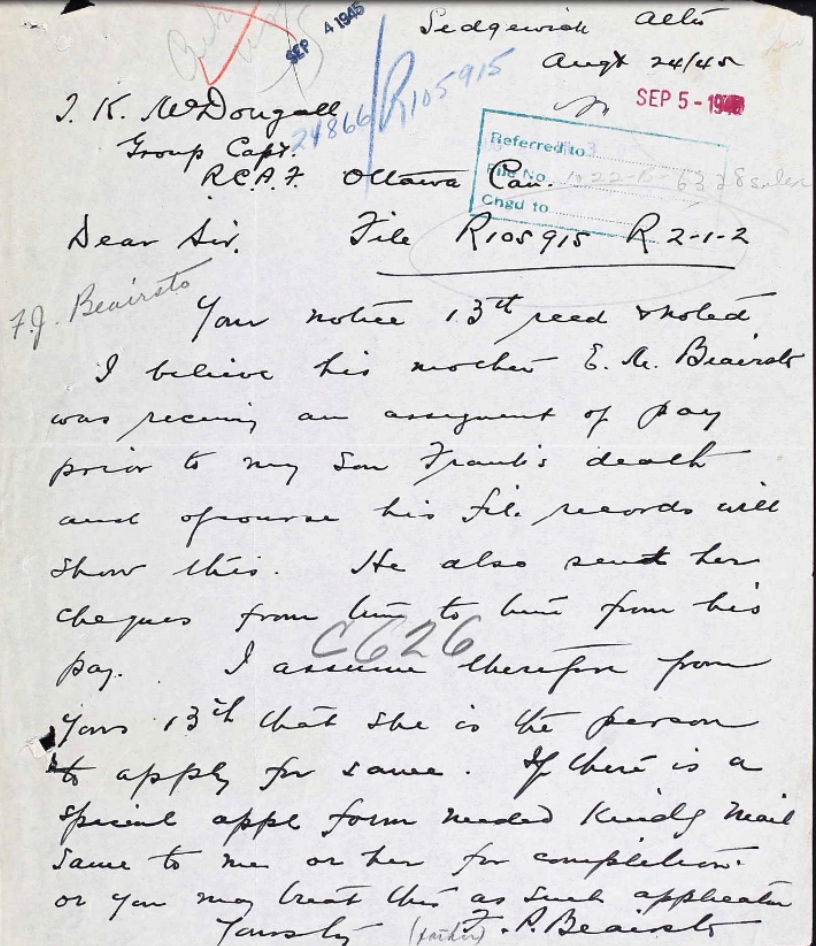 SEP 4 1945
Sedgewick Alta
Augt 24/45
SEP 5 - 1945
T. K. McDougall
24866/R105915
Group Capt.
R.C.A.F. Ottawa Can.
Referred to
File No. 1022-15-6328
Chgd to
Dear Sir. File R105915 R 2-1-2
F.J. Beairsto
Your notice 13th recd & noted
I believe his mother E. M. Beairsto
was receiving an assignment of pay
prior to my son Frank's death
and ofcourse his file records will
show this. He also sent her
cheques from time to time from his
C626
pay. I assume therefore from
yours 13th that she is the person
to apply for same. If there is a
special appl form needed Kindly Mail
same to me or her for completion.
or you may treat this as such application
Yours try (father) F. P. Beairsto